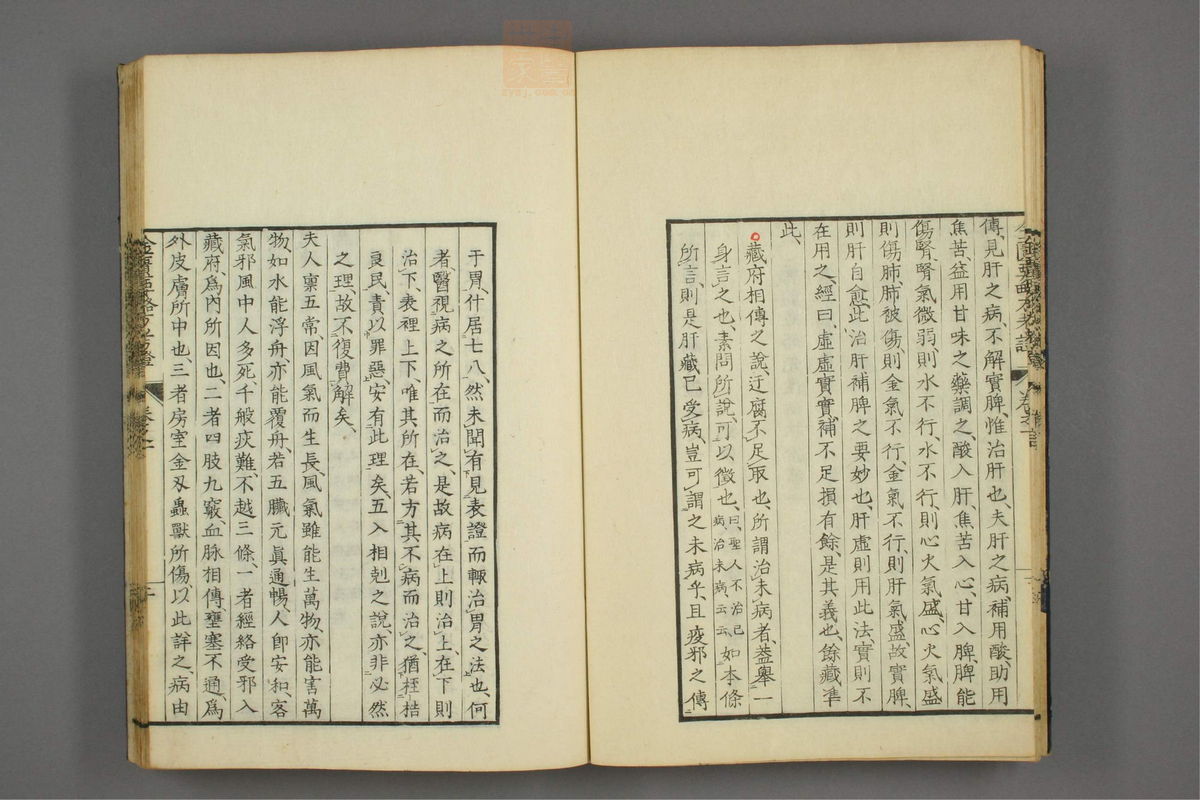 傳見肝之病、不解實脾、惟治肝也、夫肝之病、補用酸、助用
焦苦、益用甘味之藥調之、酸入肝、焦苦入心、甘入脾、脾能
傷腎、腎氣微弱、則水不行、水不行、則心火氣盛、心火氣盛
則傷肺、肺被傷、則金氣不行、金氣不行、則肝氣盛、故實脾、
則肝自愈、此治肝補脾之要妙也、肝虛則用此法、實則不
在用之、經曰、虛虛實實、補不足、損有餘、是其義也、餘藏準
此、
藏府相傳之說、迂腐不足取也、所謂治未病者、葢舉一
身言之也、素問所說、可以徵也、曰、聖人不治已病、治未病、云云、如本條
所言、則是肝藏已受病、豈可謂之未病乎、且疫邪之傳
于胃、什居七八、然未聞有見表證而輙治胃之法也、何
者、醫視病之所在而治之、是故病在上則治上、在下則
治下、表裡上下、唯其所在、若方其不病而治之、猶桎梏
良民、責以罪惡、安有此理矣、五入相剋之說、亦非必然
之理、故不復費解矣、
夫人禀五常、因風氣而生長、風氣雖能生萬物、亦能害萬
物、如水能浮舟、亦能覆舟、若五臟元眞通暢、人卽安和、客
氣邪風、中人多死、千般疢難、不越三條、一者經絡受邪、入
藏府、爲內所因也、二者四肢九竅、血脉相傳、壅塞不通、爲
外皮膚所中也、三者房室金刃蟲獸所傷、以此詳之、病由